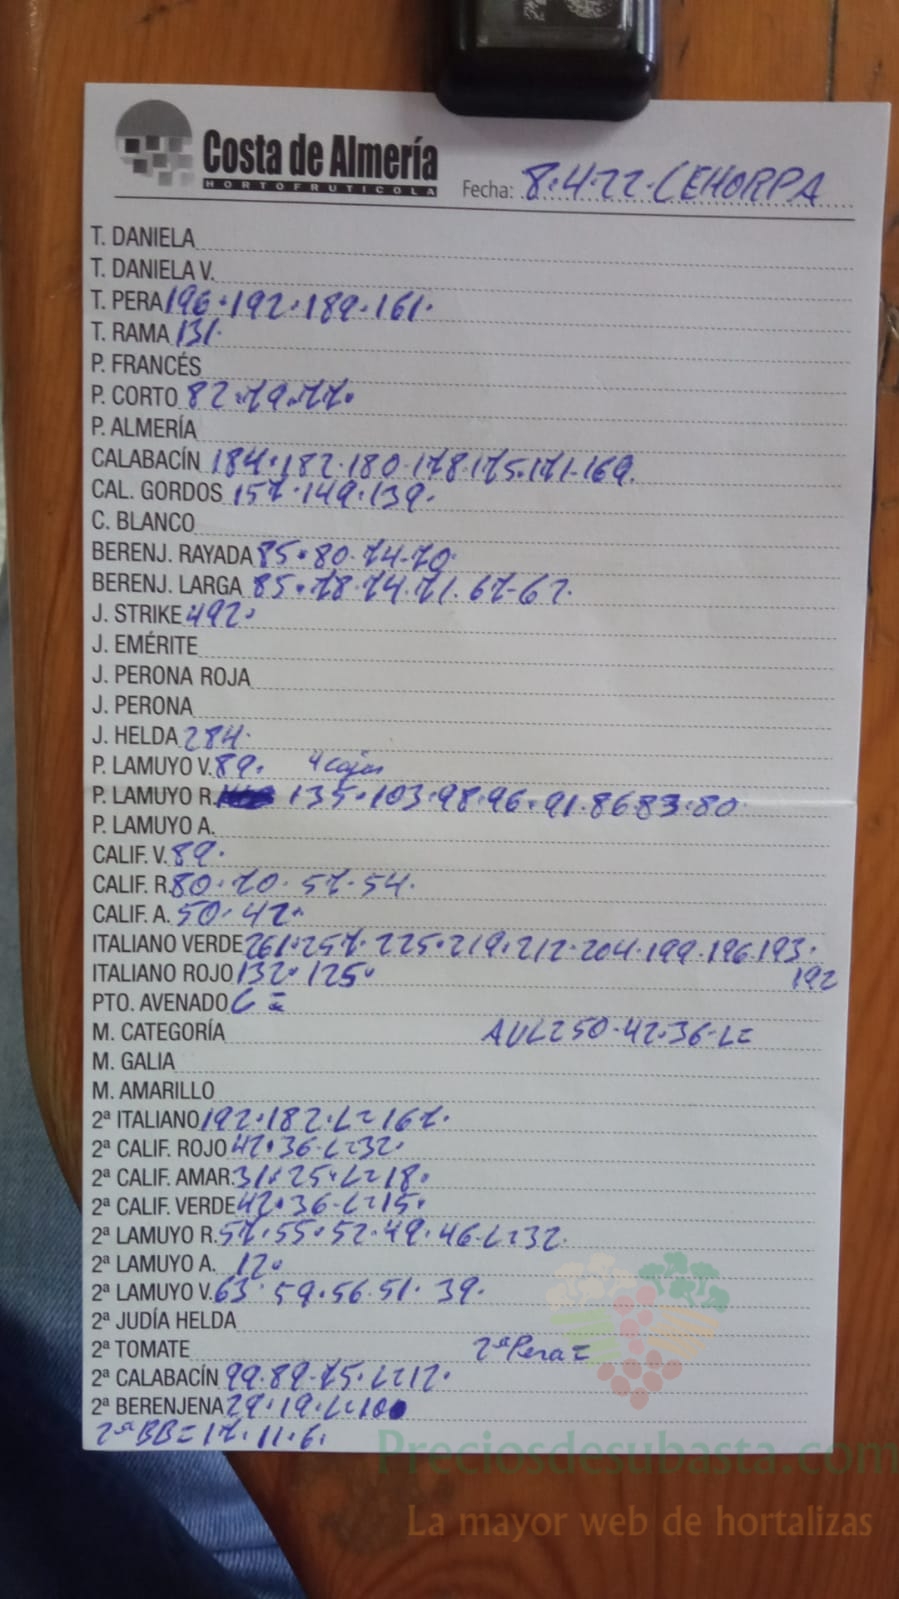 Costa de Almería
HORTOFRUTICOLA
Fecha: 8.4.22. CEHORPA
T. DANIELA
T. DANIELA V.
T. PERA 196.192.189.161.
T. RAMA 131.
P. FRANCÉS
P. CORTO 82.79.77.
P. ALMERÍA
CALABACÍN 184.182.180.178.175.171.169.
CAL. GORDOS 157.149.139.
C. BLANCO
BERENJ. RAYADA 85.80.74-70.
BERENJ. LARGA 85.78.74.71.67-62.
J. STRIKE 492.
J. EMÉRITE
J. PERONA ROJA
J. PERONA
J. HELDA 284.
P. LAMUYO V. 89. 4 cajas
P. LAMUYO R. 135.103.98.96.91.86 83.80.
P. LAMUYO A.
CALIF. V. 89.
CALIF. R. 80.70.57.54.
CALIF. A. 50.42.
ITALIANO VERDE 261.257.225.219.212.204.199.196.193.
192
ITALIANO ROJO 132.125.
PTO. AVENADO C =
M. CATEGORÍA 50.42.36-L=
M. GALIA
M. AMARILLO
2ª ITALIANO 192.182.L=167.
2ª CALIF. ROJO 42.36-L=32.
2ª CALIF. AMAR. 31.25.L=18.
2ª CALIF. VERDE 42.36-L=15.
2ª LAMUYO R. 57.55.52.49.46-L=32.
2ª LAMUYO A. 12.
2ª LAMUYO V. 63.59.56.51.39.
2ª JUDÍA HELDA
2ª TOMATE 2ª Pera =
2ª CALABACÍN 99.89.75.L=12.
2ª BERENJENA 29.19.L=10
2ª BB=17.11.6.
Preciosdesubasta.com
La mayor web de hortalizas